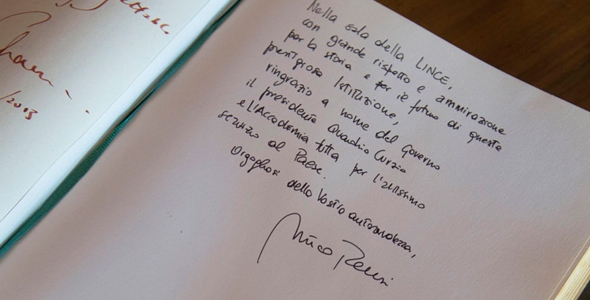 /2003
Nella sala della LINCE,
con grande rispetto e ammirazione
per la storia e per il futuro di questa
prestigiosa Istituzione,
ringrazio a nome del Governo
il presidente Quadrio Curzio
e l'Accademia tutta per l'altissimo
servizio al Paese.
Orgogliosi della Vostra autorevolezza,